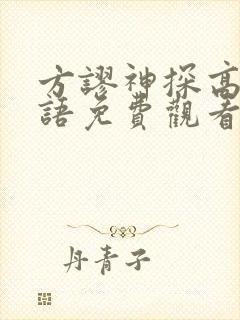 方謬神探高
語免費觀看
丹青子